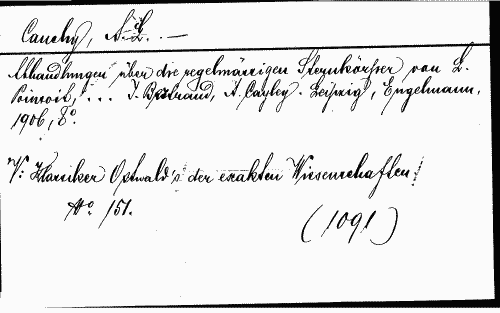 Cauchy, A. L. —
Abhandlungen über die regelmässigen Sternkörper von L.
Poinsot, ... J. Bertrand, A. Cayley. Leipzig, Engelmann,
1906, 8°.
V: Klassiker Ostwald's der exakten Wissenschaften,
No. 151.
(1091)